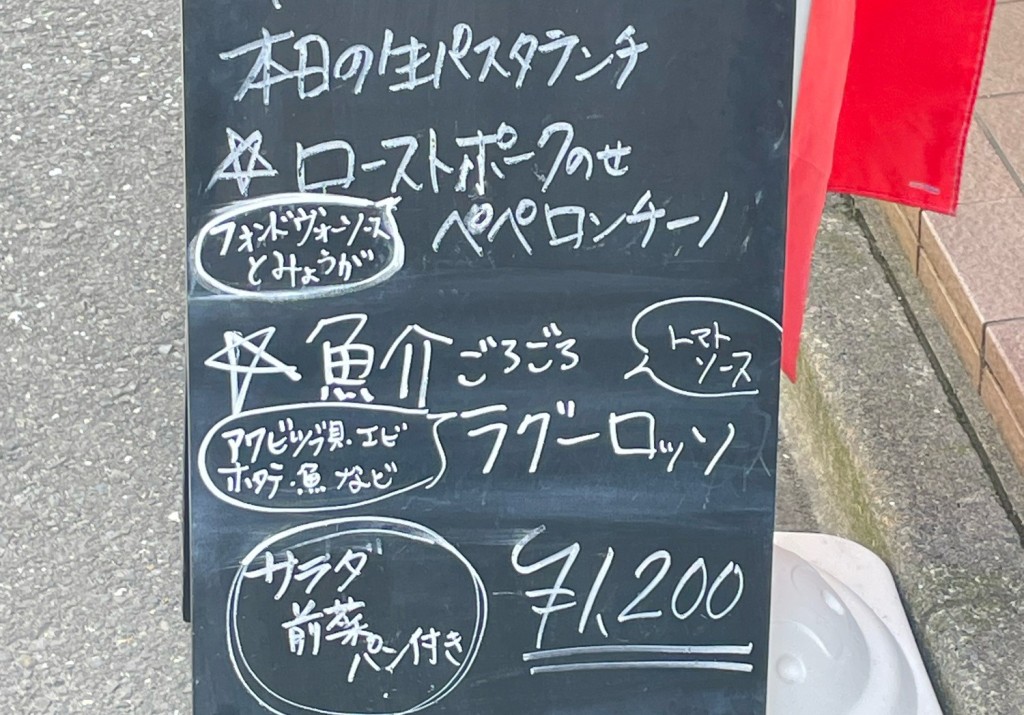 本日の生パスタランチ
☆ローストポークのせ
ペペロンチーノ
フォンドヴォーソース
とみょうが
☆魚介ごろごろ
トマト
ソース
ラグーロッソ
アワビツブ貝・エビ
ホタテ・魚など
サラダ
前菜
パン付き
¥1,200